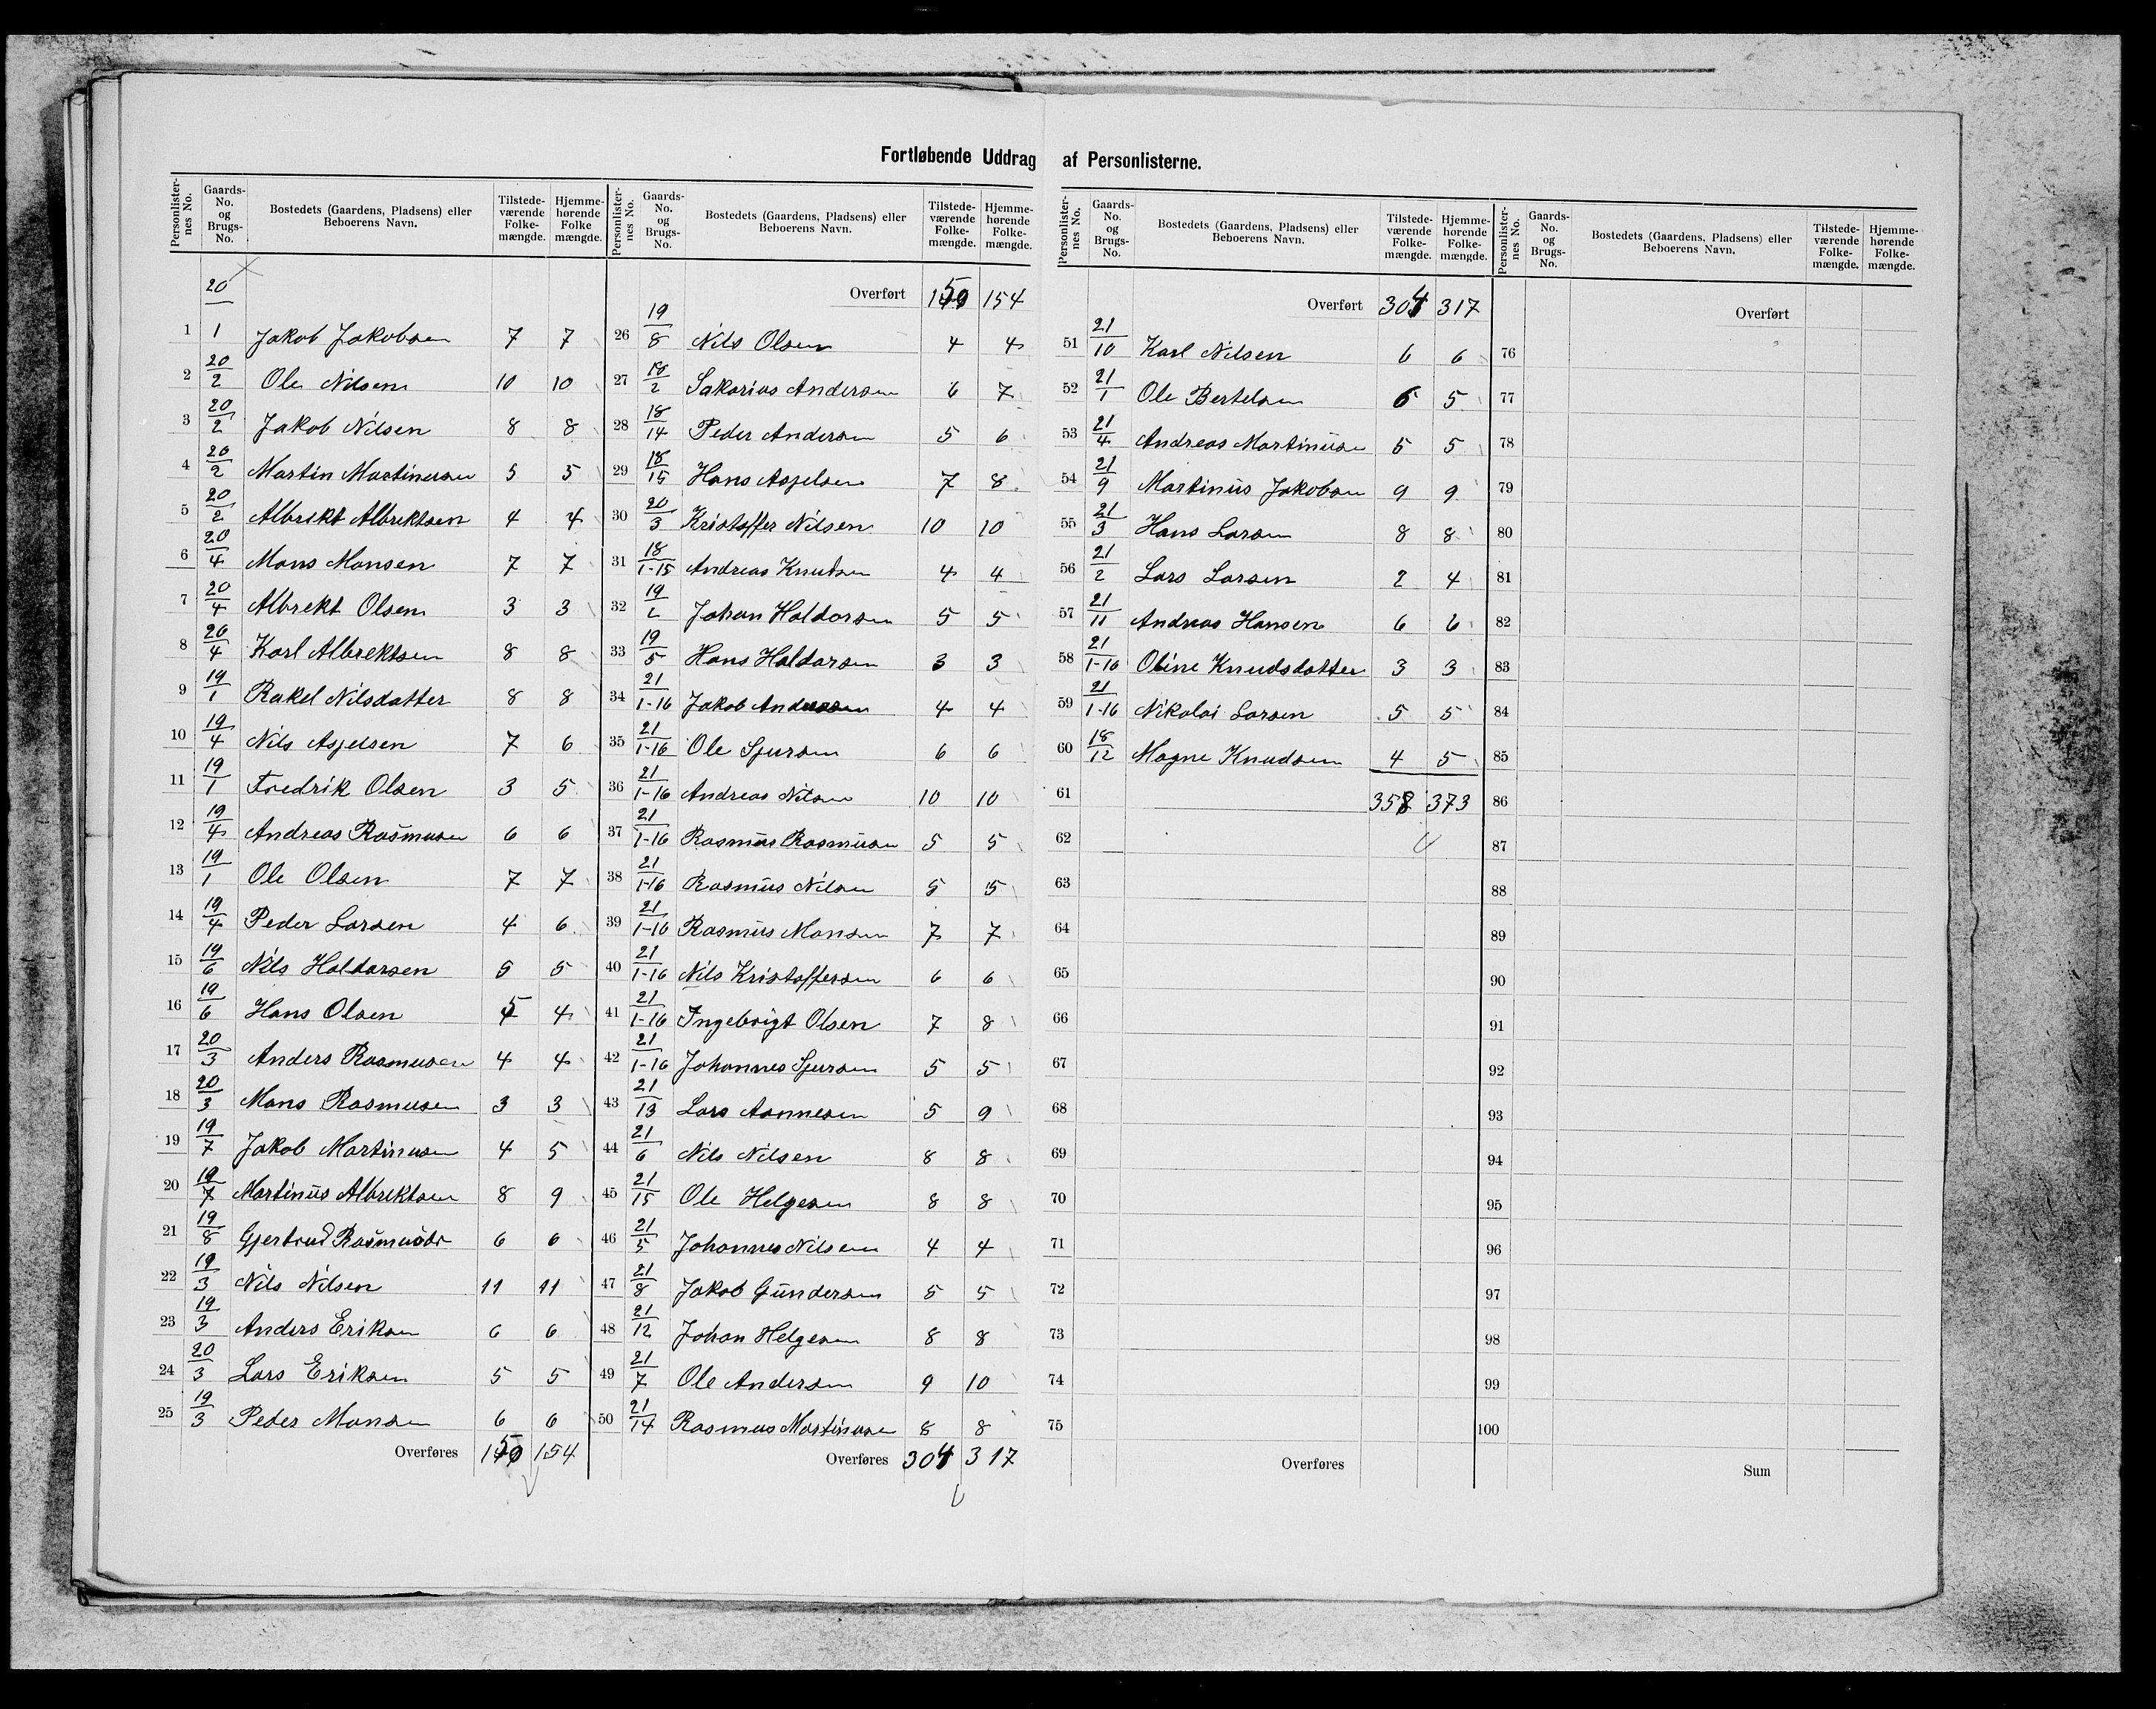 Fortløbende Uddrag af Personlisterne.
Personlisternes No. | Gaards-No. og Brugs-No. | Bostedets (Gaardens, Pladsens) eller Beboerens Navn. | Tilstedeværende Folkemængde. | Hjemmehørende Folkemængde.
1 20/1 Jakob Jakobsen 7 7
2 20/2 Ole Nilsen 10 10
3 20/2 Jakob Nilsen 8 8
4 20/2 Martin Martinusen 5 5
5 20/2 Albrekt Albrektsen 4 4
6 20/4 Mons Monsen 7 7
7 20/4 Albrekt Olsen 3 3
8 20/4 Karl Albrektsen 8 8
9 19/1 Rakel Nilsdatter 8 8
10 19/4 Nils Asjelsen 7 6
11 19/1 Fredrik Olsen 3 5
12 19/4 Andreas Rasmusen 6 6
13 19/1 Ole Olsen 7 7
14 19/4 Peder Larsen 4 6
15 19/6 Nils Haldorsen 5 5
16 19/6 Hans Olsen 5 4
17 20/3 Anders Rasmusen 4 4
18 20/3 Mons Rasmusen 3 3
19 19/7 Jakob Martinusen 4 5
20 19/7 Martinus Albrektsen 8 9
21 19/8 Gjertrud Rasmusdr 6 6
22 19/3 Nils Nilsen 11 11
23 19/3 Anders Eriksen 6 6
24 20/3 Lars Eriksen 5 5
25 19/3 Peder Monsen 6 6
Overføres 150 154
Personlisternes No. | Gaards-No. og Brugs-No. | Bostedets (Gaardens, Pladsens) eller Beboerens Navn. | Tilstedeværende Folkemængde. | Hjemmehørende Folkemængde.
Overført 150 154
26 19/8 Nils Olsen 4 4
27 18/2 Sakarias Andersen 6 7
28 18/14 Peder Andersen 5 6
29 18/15 Hans Asjelsen 7 8
30 20/3 Kristoffer Nilsen 10 10
31 18/1-15 Andreas Knudsen 4 4
32 19/2 Johan Haldorsen 5 5
33 19/5 Hans Haldorsen 3 3
34 21/1-16 Jakob Andersen 4 4
35 21/1-16 Ole Sjursen 6 6
36 21/1-16 Andreas Nilsen 10 10
37 21/1-16 Rasmus Rasmusen 5 5
38 21/1-16 Rasmus Nilsen 5 5
39 21/1-16 Rasmus Monsen 7 7
40 21/1-16 Nils Kristoffersen 6 6
41 21/1-16 Ingebrigt Olsen 7 8
42 21/1-16 Johannes Sjursen 5 5
43 21/13 Lars Aannesen 5 9
44 21/6 Nils Nilsen 8 8
45 21/15 Ole Helgesen 8 8
46 21/5 Johannes Nilsen 4 4
47 21/8 Jakob Gundersen 5 5
48 21/12 Johan Helgesen 8 8
49 21/7 Ole Andersen 9 10
50 21/14 Rasmus Martinusen 8 8
Overføres 304 317
Personlisternes No. | Gaards-No. og Brugs-No. | Bostedets (Gaardens, Pladsens) eller Beboerens Navn. | Tilstedeværende Folkemængde. | Hjemmehørende Folkemængde.
Overført 304 317
51 21/10 Karl Nilsen 6 6
52 21/1 Ole Bertelsen 6 5
53 21/4 Andreas Martinusen 5 5
54 21/9 Martinus Jakobsen 9 9
55 21/3 Hans Larsen 8 8
56 21/2 Lars Larsen 2 4
57 21/11 Andreas Hansen 6 6
58 21/1-16 Oline Knudsdatter 3 3
59 21/1-16 Nikolai Larsen 5 5
60 18/12 Magne Knudsen 4 5
61 358 373
62
63
64
65
66
67
68
69
70
71
72
73
74
75
Overføres
Personlisternes No. | Gaards-No. og Brugs-No. | Bostedets (Gaardens, Pladsens) eller Beboerens Navn. | Tilstedeværende Folkemængde. | Hjemmehørende Folkemængde.
Overført
76
77
78
79
80
81
82
83
84
85
86
87
88
89
90
91
92
93
94
95
96
97
98
99
100
Sum